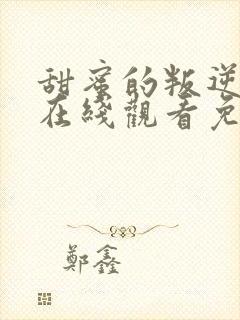 甜蜜的叛逆
在綫觀看免
鄭鑫